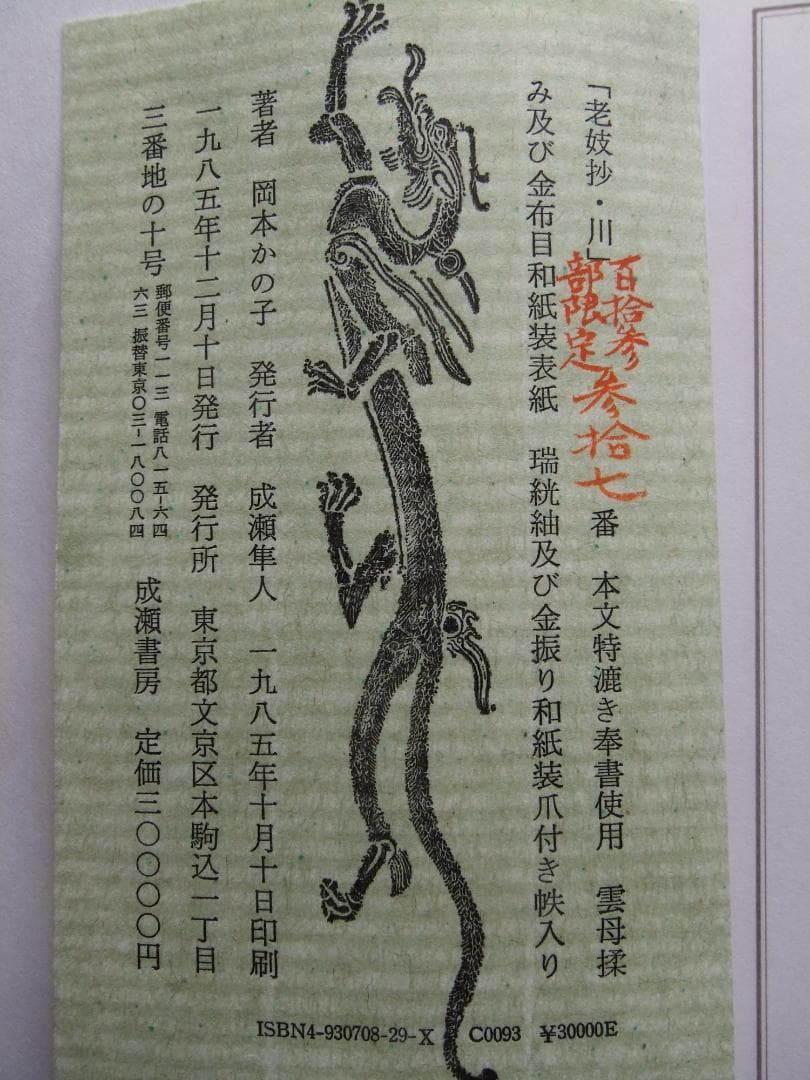 「老妓抄・川」百拾参部限定参拾七番　本文特漉き奉書使用　雲母揉
み及び金布目和紙装表紙　瑞絖紬及び金振り和紙装爪付き帙入り
著者　岡本かの子　発行者　成瀬隼人　一九八五年十月十日印刷
一九八五年十二月十日発行　発行所　東京都文京区本駒込一丁目
三番地の十号　郵便番号一一三　電話八一五−六四六三　振替東京〇三−一八〇〇八四　成瀬書房　定価三〇〇〇〇円
ISBN4-930708-29-X　C0093　¥30000E